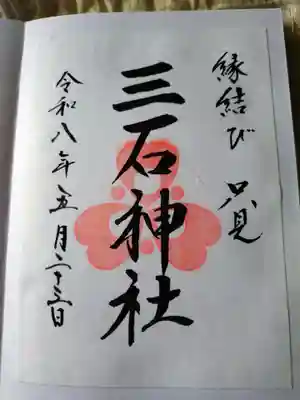 縁結び 只見
三石神社
令和八年五月二十三日